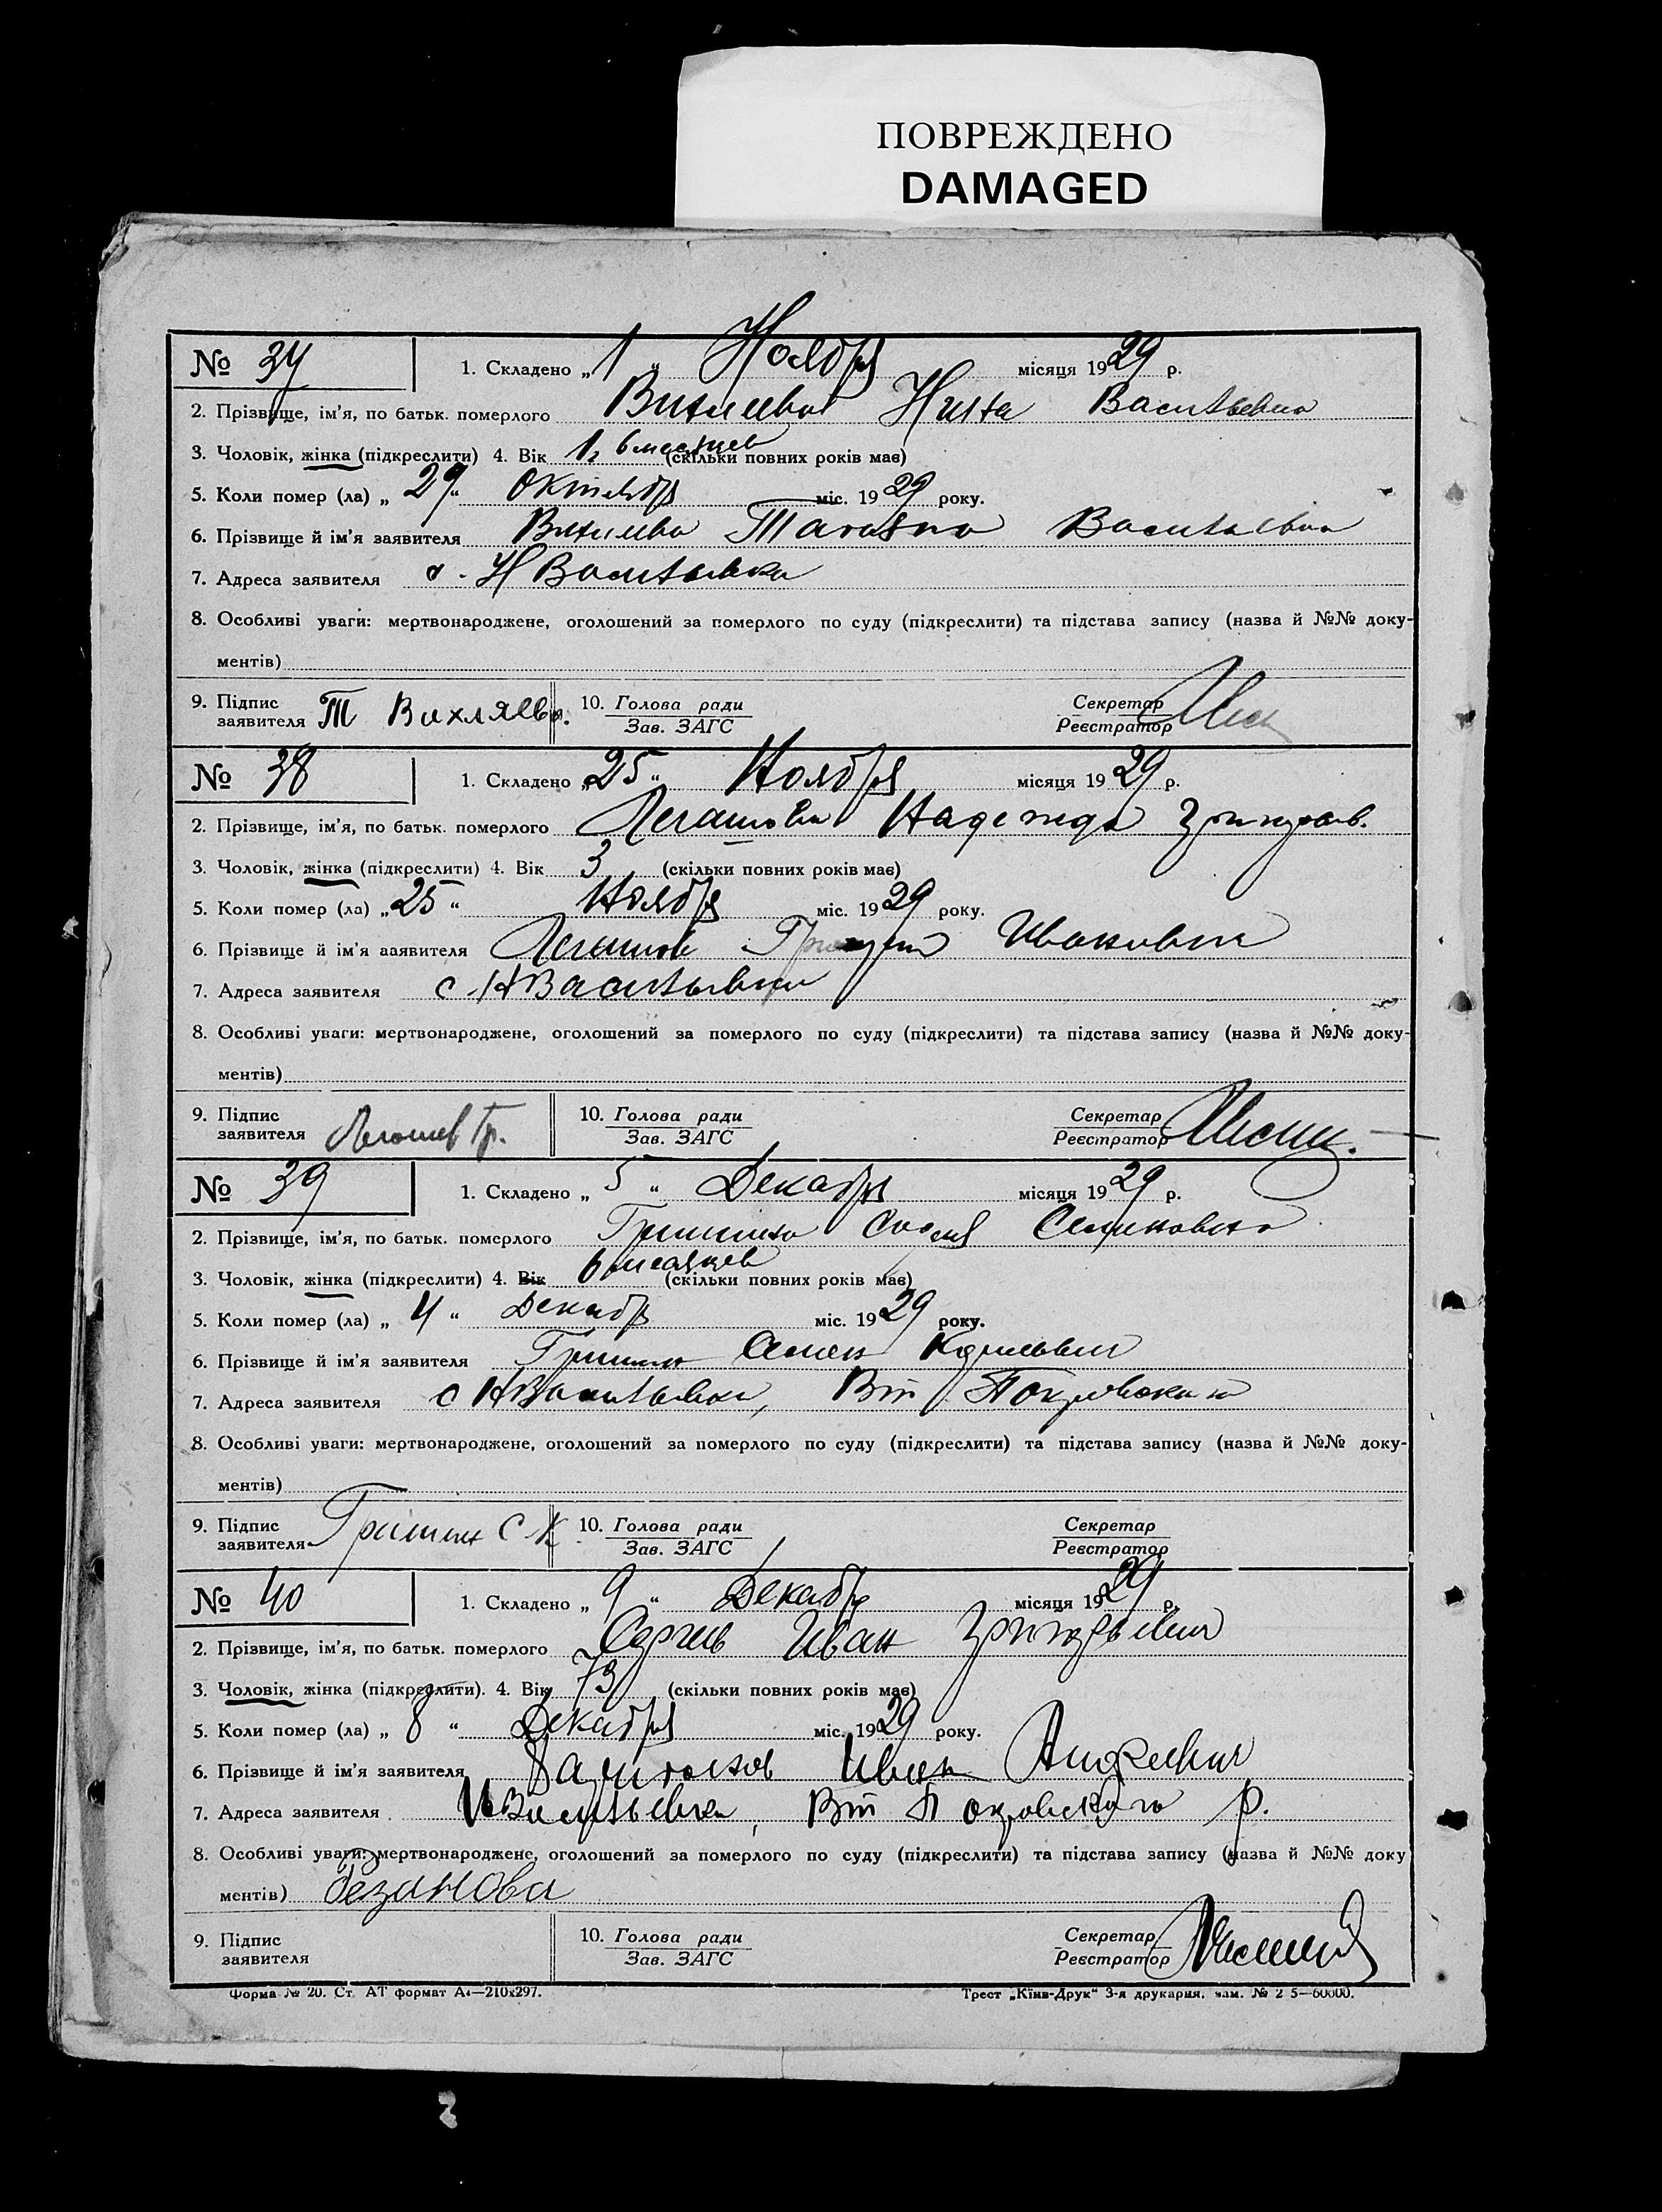 ПОВРЕЖДЕНО
DAMAGED
№ 37 1. Складено „ 1 “ Ноября місяця 1929 р.
2. Прізвище, ім’я, по батьк. померлого Вихляева Нина Васильевна
3. Чоловік, жінка (підкреслити) 4. Вік 1 г 6 месяцев (скільки повних років має)
5. Коли помер (ла) „ 29 “ Октября міс. 1929 року.
6. Прізвище й ім’я заявителя Вихляева Васильевна
7. Адреса заявителя с. Н Васильевка
8. Особливі уваги: мертвонароджене, оголошений за померлого по суду (підкреслити) та підстава запису (назва й №№ доку-
ментів)
9. Підпис заявителя Т Вихляева. 10. Голова ради Зав. ЗАГС Секретар Реєстратор
№ 38 1. Складено „ 25 “ Ноября місяця 1929 р.
2. Прізвище, ім’я, по батьк. померлого Легашова Надежда Григорьев.
3. Чоловік, жінка (підкреслити) 4. Вік 3 (скільки повних років має)
5. Коли помер (ла) „ 25 “ Ноября міс. 1929 року.
6. Прізвище й ім’я заявителя Легашов Григорий Иванович
7. Адреса заявителя с. Н Васильевка
8. Особливі уваги: мертвонароджене, оголошений за померлого по суду (підкреслити) та підстава запису (назва й №№ доку-
ментів)
9. Підпис заявителя Легошев Гр. 10. Голова ради Зав. ЗАГС Секретар Реєстратор
№ 39 1. Складено „ 5 “ Декабря місяця 1929 р.
2. Прізвище, ім’я, по батьк. померлого Гришина Софья Семеновна
3. Чоловік, жінка (підкреслити) 4. Вік 6 месяцев (скільки повних років має)
5. Коли помер (ла) „ 4 “ Декабря міс. 1929 року.
6. Прізвище й ім’я заявителя Гришин Семен
7. Адреса заявителя с Н Васильевка, Вт Покровского
8. Особливі уваги: мертвонароджене, оголошений за померлого по суду (підкреслити) та підстава запису (назва й №№ доку-
ментів)
9. Підпис заявителя Гришин С К 10. Голова ради Зав. ЗАГС Секретар Реєстратор
№ 40 1. Складено „ 9 “ Декабря місяця 1929 р.
2. Прізвище, ім’я, по батьк. померлого Сергеев Иван Григорьевич
3. Чоловік, жінка (підкреслити). 4. Вік 73 (скільки повних років має)
5. Коли помер (ла) „ 8 “ Декабря міс. 1929 року.
6. Прізвище й ім’я заявителя Иван Андреевич
7. Адреса заявителя Н Васильевка, Вт Покровского р.
8. Особливі уваги: мертвонароджене, оголошений за померлого по суду (підкреслити) та підстава запису (назва й №№ доку
ментів) Резанова
9. Підпис заявителя 10. Голова ради Зав. ЗАГС Секретар Реєстратор
Форма № 20. Ст. АТ формат А4—210x297. Трест „Київ-Друк“ 3-я друкарня.